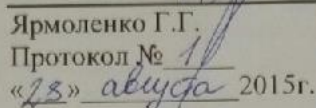 Ярмоленко Г.Г.
Протокол № 1
«28» августа 2015г.